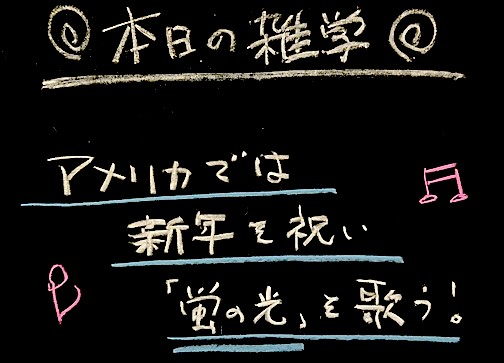 本日の雑学
アメリカでは
新年を祝い
「蛍の光」を歌う!